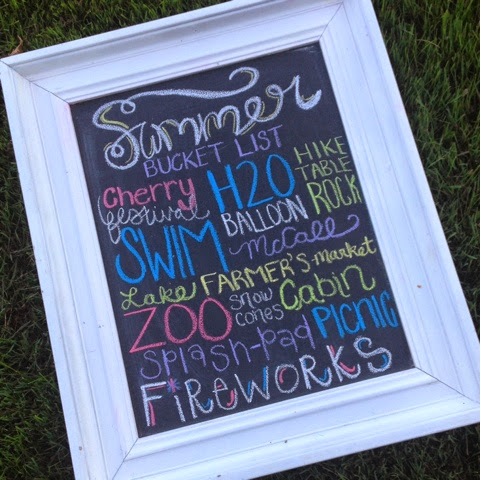 Summer
BUCKET LIST
Cherry festival
H2O BALLOON
HIKE TABLE ROCK
SWIM
McCall
Lake
FARMER'S-market
ZOO
SNOW CONES
Cabin
Splash-Pad
PICNIC
FiREWORKS